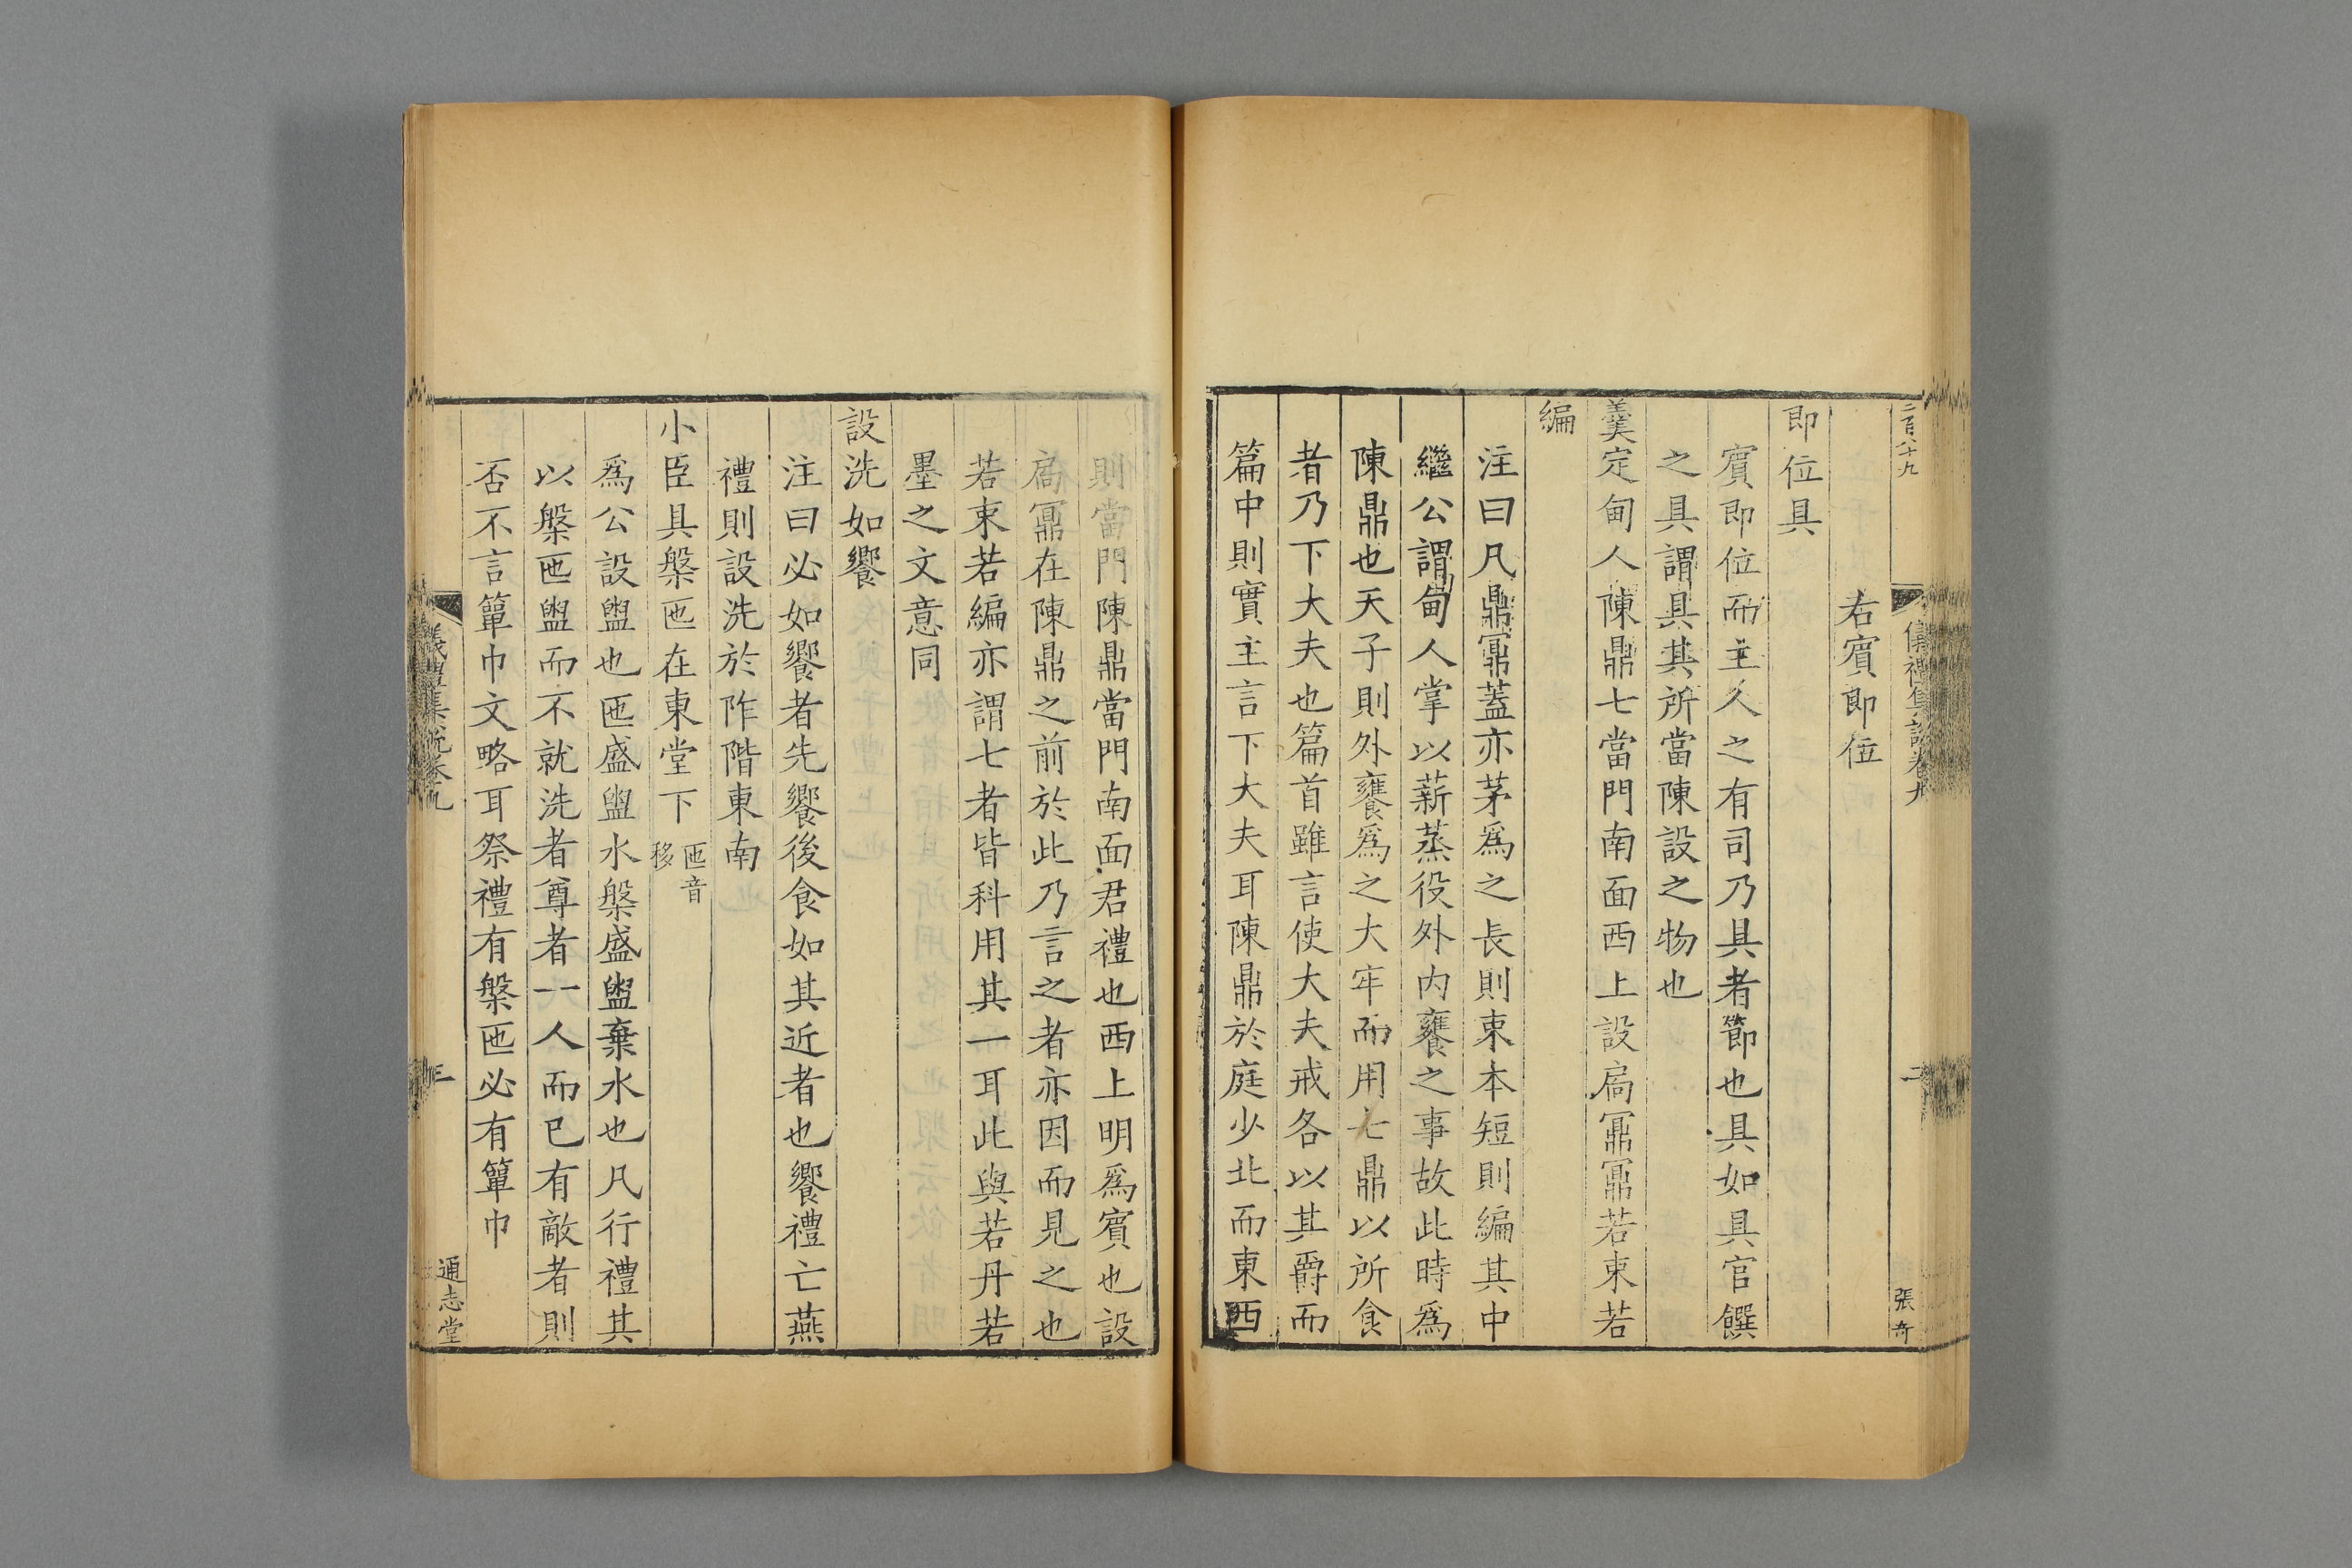 二百八十九
儀禮集說卷九
二
張奇
右賓即位
即位具
賓即位而主人之有司乃具者節也具如具官饌
之具謂具其所當陳設之物也
羹定甸人陳鼎七當門南面西上設扃鼏鼏若束若
編
注曰凡鼎鼏蓋亦茅爲之長則束本短則編其中
繼公謂甸人掌以薪蒸役外內饔之事故此時爲
陳鼎也天子則外饔爲之大牢而用七鼎以所食
者乃下大夫也篇首雖言使大夫戒各以其爵而
篇中則實主言下大夫耳陳鼎於庭少北而東西
則當門陳鼎當門南面君禮也西上明爲賓也設
扃鼏在陳鼎之前於此乃言之者亦因而見之也
若束若編亦謂七者皆科用其一耳此與若丹若
墨之文意同
設洗如饗
注曰必如饗者先饗後食如其近者也饗禮亡燕
禮則設洗於阼階東南
小臣具槃匜在東堂下匜音移
爲公設盥也匜盛盥水槃盛盥棄水也凡行禮其
以槃匜盥而不就洗者尊者一人而已有敵者則
否不言簞巾文略耳祭禮有槃匜必有簞巾
儀禮集說卷九
三
通志堂